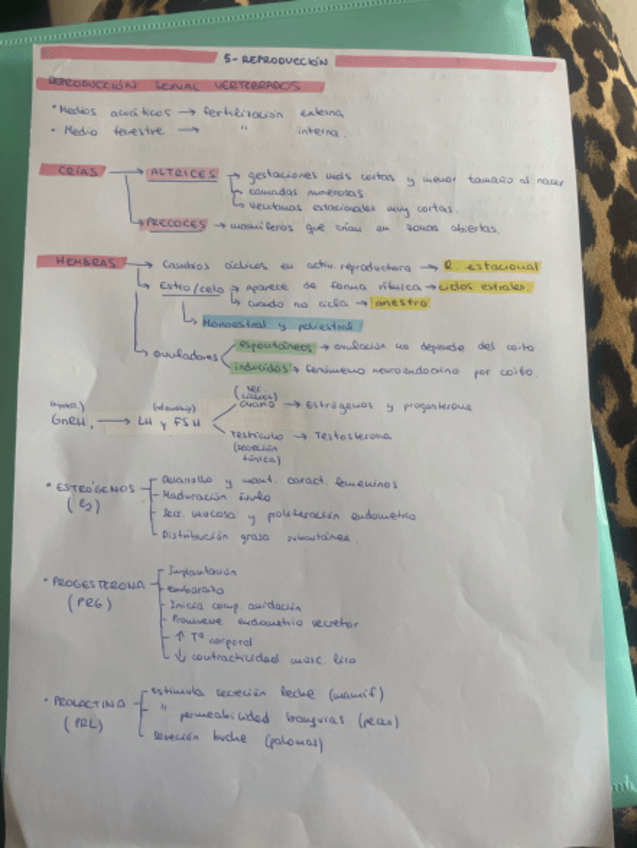 5- REPRODUCCIÓN
REPRODUCCIÓN SEXUAL VERTEBRADOS
• Medios acuáticos → fertilización externa
• Medio terrestre → " interna.
CRÍAS → ALTRICES → gestaciones más cortas y menor tamaño al nacer
→ camadas numerosas
→ ventanas estacionales muy cortas.
→ PRECOCES → mamíferos que crían en zonas abiertas.
HEMBRAS → Cambios cíclicos en activ. reproductora → R. estacional
→ Estro/celo → aparece de forma rítmica → ciclos estrales.
→ cuando no cicla → anestro
→ Monoestral y poliestral
→ ovuladores espontáneos → ovulación no depende del coito
inducidos → fenómeno neuroendocrino por coito.
GnRH. → LH y FSH
ovario → Estrógenos y progesterona
Testículo → Testosterona
(secreción
tónica)
• ESTRÓGENOS - Desarrollo y mant. caract. femeninos
(E2) - Maduración óvulo
- Secr. mucosa y proliferación endometrio
- Distribución grasa subcutánea.
• PROGESTERONA - Implantación
(PRG) - embarazo
- Inicia comp. anidación
- Promueve endometrio secretor
- ↑ Tª corporal
- ↓ contractilidad músc. liso
• PROLACTINA - estimula secreción leche (mamíf)
(PRL) - " permeabilidad branquias (peces)
- secreción buche (palomas)